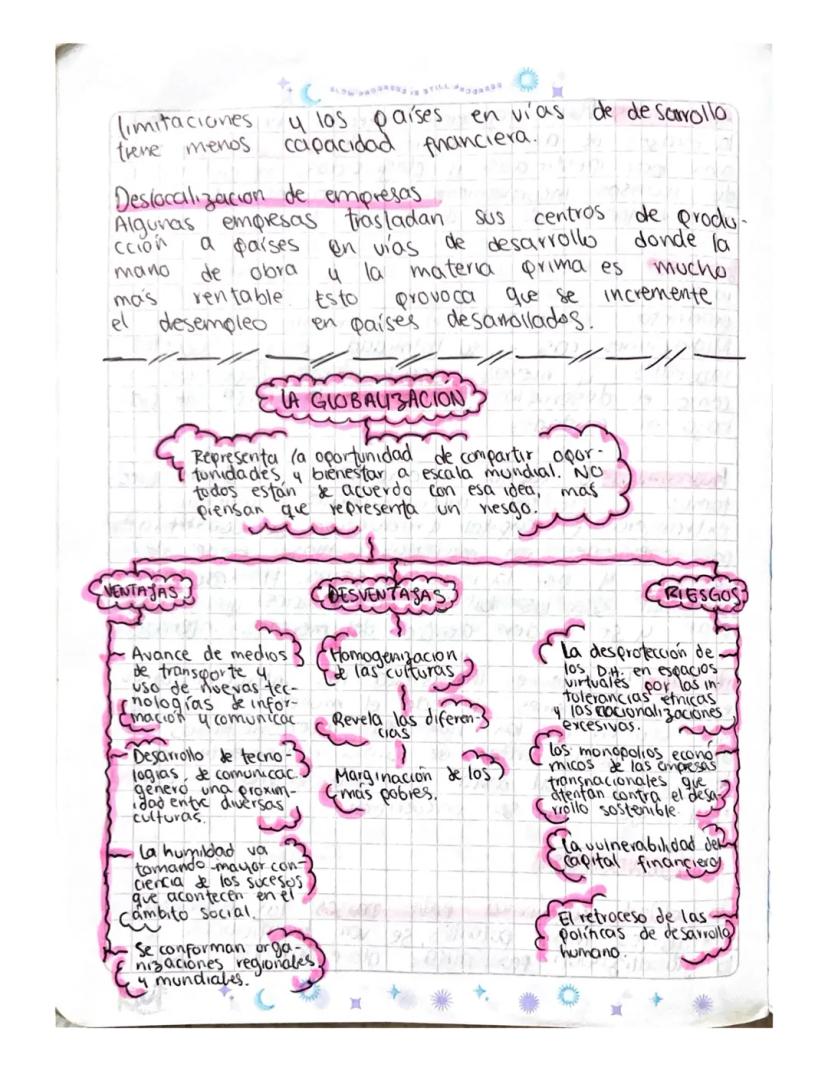 limitaciones y los países en vías de desarrollo
tiene menos capacidad financiera.
Deslocalización de empresas
Algunas empresas trasladan sus centros de produ-
cción a países en vías de desarrollo donde la
mano de obra y la materia prima es mucho
más rentable Esto provoca que se incremente
el desempleo en países desarrollados.
LA GLOBALIZACIÓN
Representa la oportunidad de compartir opor-
tunidades y bienestar a escala mundial. NO
todos están de acuerdo con esa idea, mas
piensan que representa un riesgo.
VENTAJAS
Avance de medios
de transporte y
uso de nuevas tec-
nologías de infor-
mación y comunicac
Desarrollo de tecno-
logías de comunicac.
generó una proxim-
idad entre diversas
culturas.
La humildad va
tomando mayor con-
ciencia de los sucesos
que acontecen en el
ámbito social.
Se conforman orga-
nizaciones regionales
y mundiales.
DESVENTAJAS
Homogenización
de las culturas
Revela las diferen-
cias
Marginación de los
más pobres.
RIESGOS
La desprotección de
los D.H. en espacios
virtuales por las in
tolerancias étnicas
y los nacionalizaciones
excesivos.
los monopolios econó
micos de las empresas
transnacionales que
atentan contra el desa-
rrollo sostenible.
La vulnerabilidad del
capital financiero
El retroceso de las
políticas de desarrollo
humano.